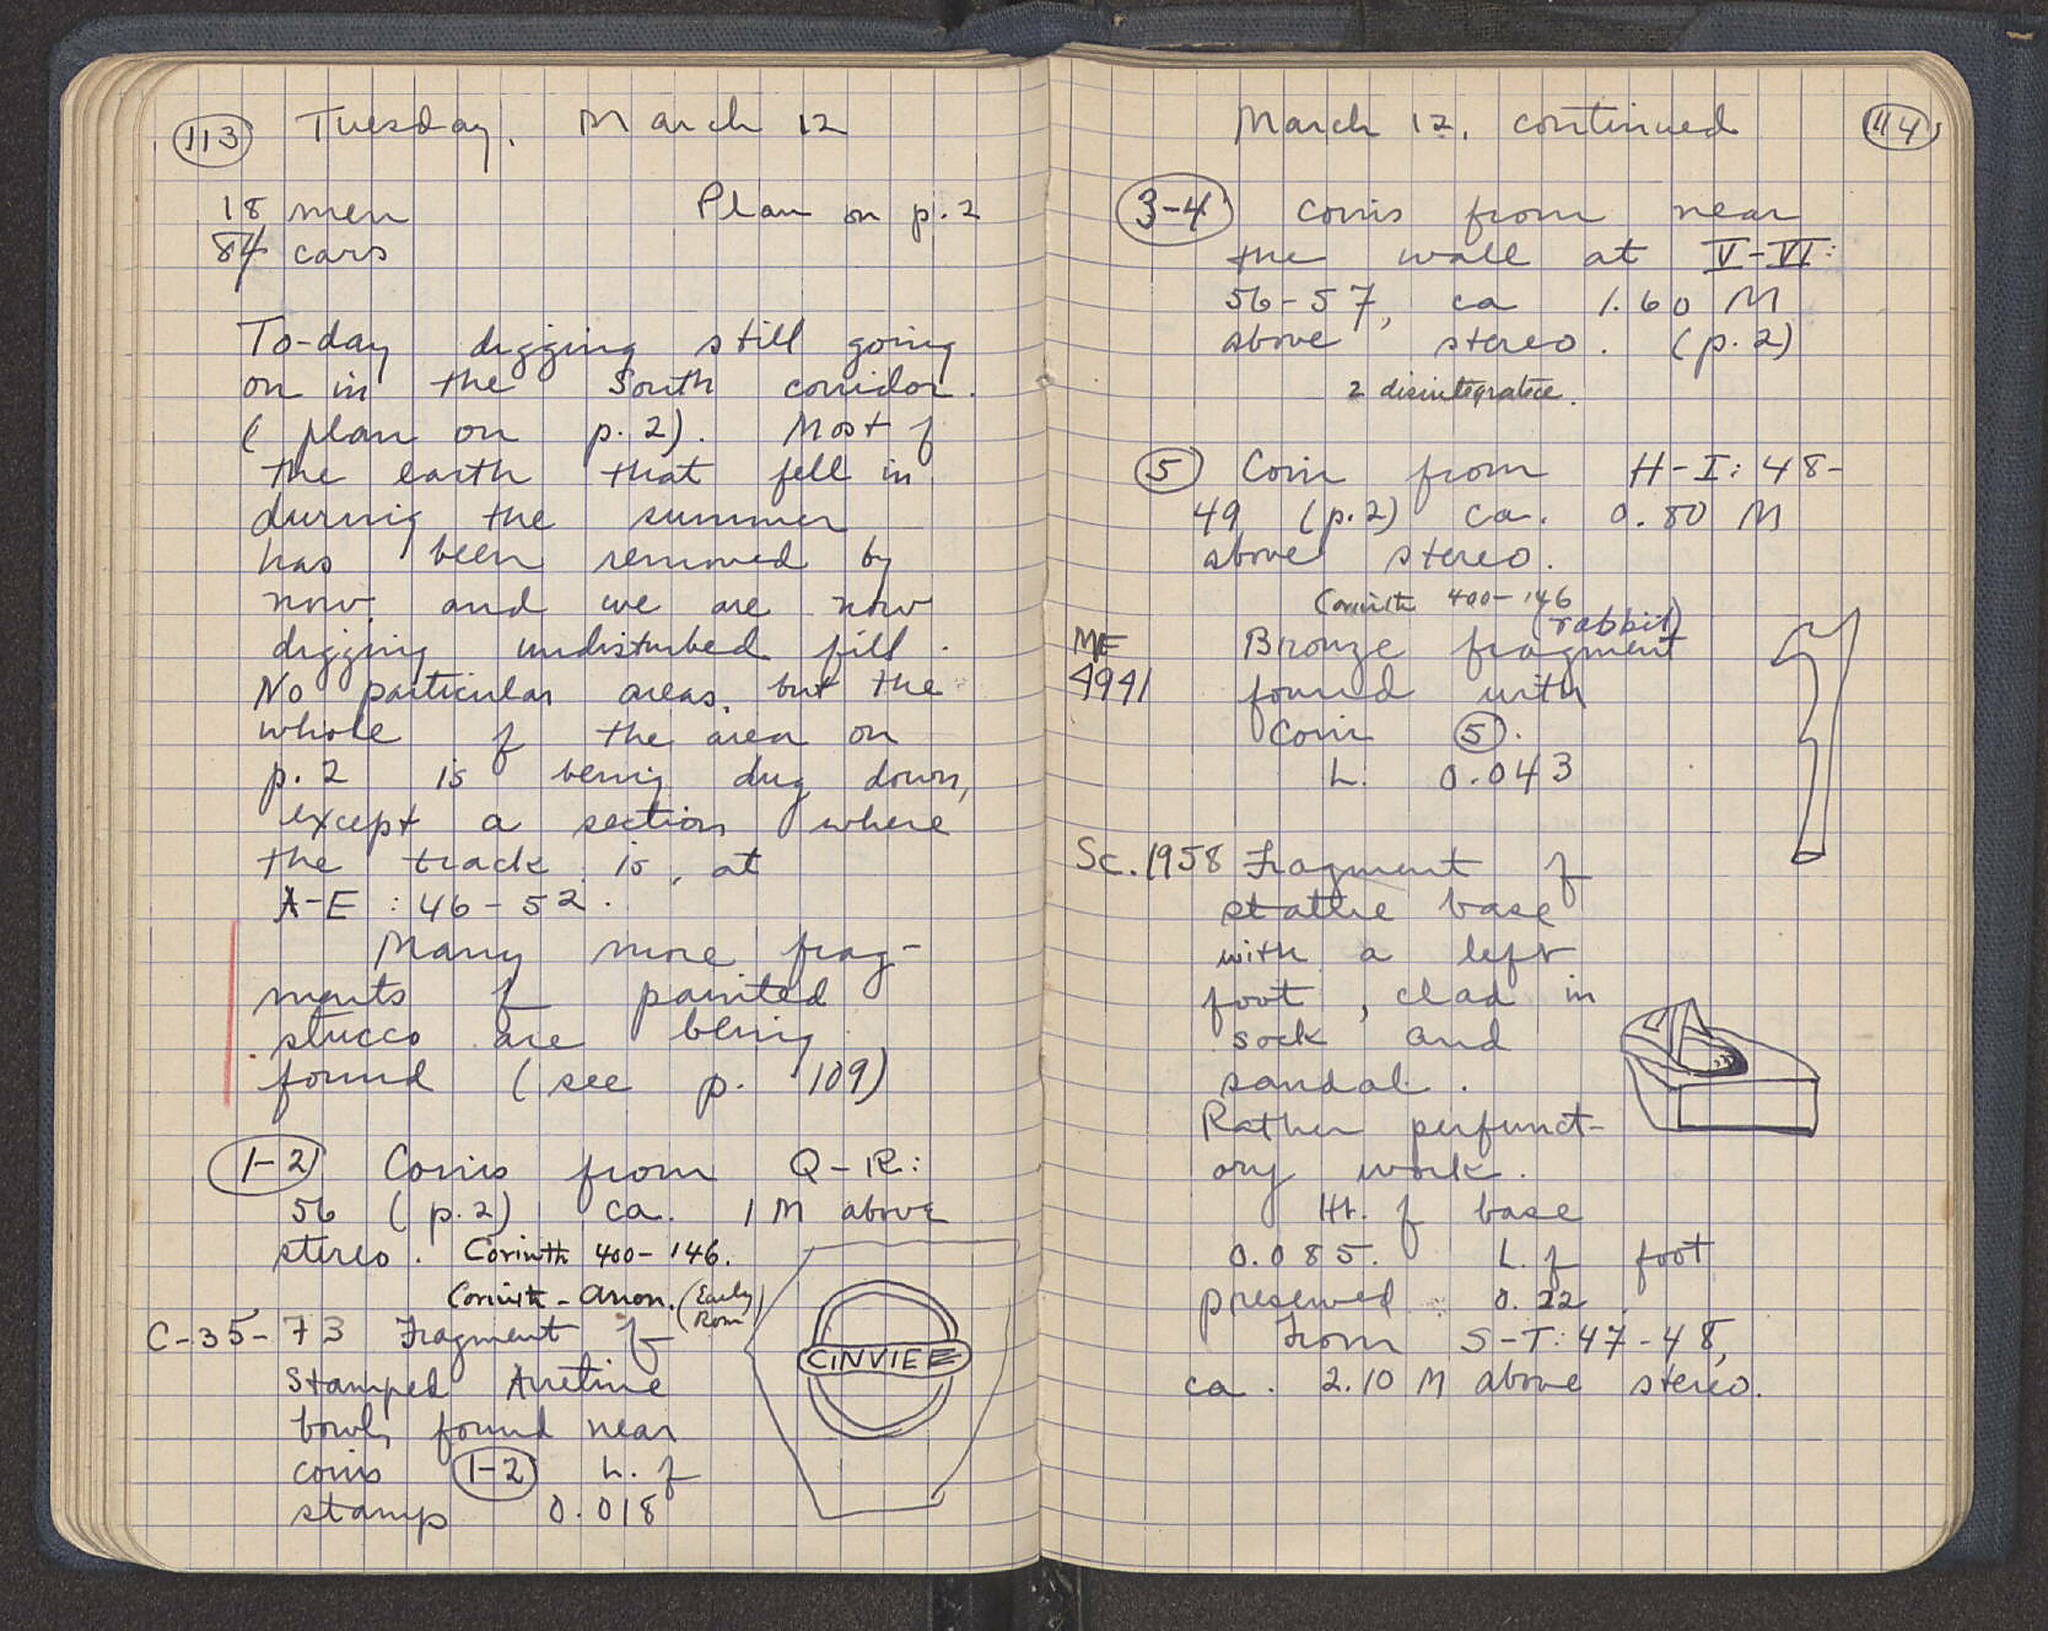 113 Tuesday, March 12
18 men Plan on p. 2
84 cars
To-day digging still going
on in the South corridor.
(plan on p. 2). Most of
the earth that fell in
during the summer
has been removed by
now, and we are now
digging undisturbed fill.
No particular areas, but the
whole of the area on
p. 2 is being dug down,
except a section where
the track is, at
A-E : 46 - 52.
Many more frag-
ments of painted
stucco are being
found (see p. 109)
1-2 Coins from Q-R:
56 (p.2) ca. 1 M above
stereo. Corinth 400-146.
Corinth - Anon. (Early
Rom)
C-35-73 Fragment of
Stamped Arretine
bowl, found near
coins 1-2 L. of
stamp 0.018
CINVIE
March 12, continued 114
3-4 Coins from near
the wall at V-VI:
56-57, ca 1.60 M
above stereo. (p.2)
2 disintegrated.
5 Coin from H-I: 48-
49 (p.2) ca. 0.80 M
above stereo.
Corinth 400-146
(rabbit)
ME 4941
Bronze fragment
found with
Coin 5.
L. 0.043
Sc. 1958 Fragment of
statue base
with a left
foot, clad in
sock and
sandal.
Rather perfunct-
ory work.
Ht. of base
0.085. L. of foot
preserved 0.22
From S-T: 47-48,
ca. 2.10 M above stereo.